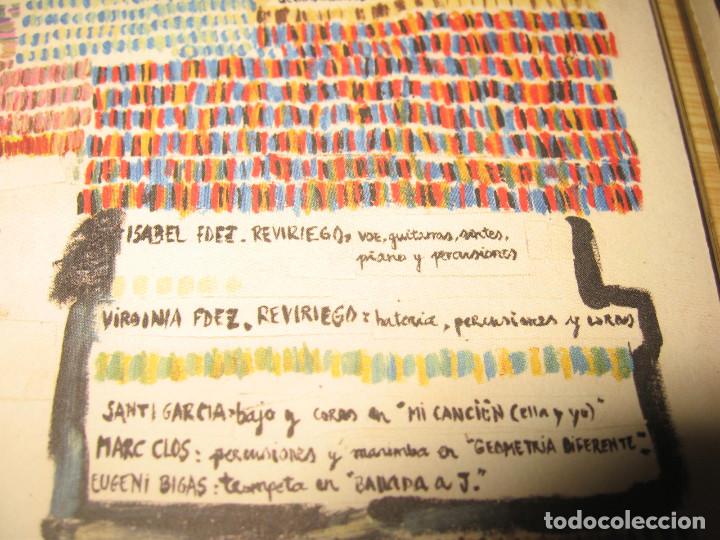 ISABEL FDEZ. REVIRIEGO, voz, guitarras, sintes,
piano y percusiones
VIRGINIA FDEZ. REVIRIEGO: batería, percusiones y coros
SANTI GARCIA: bajo y coros en "MI CANCIÓN (ella y yo)"
MARC CLOS: percusiones y marimba en "GEOMETRÍA DIFERENTE".
EUGENI BIGAS: trompeta en "BALLADA A J."
todocoleccion.net